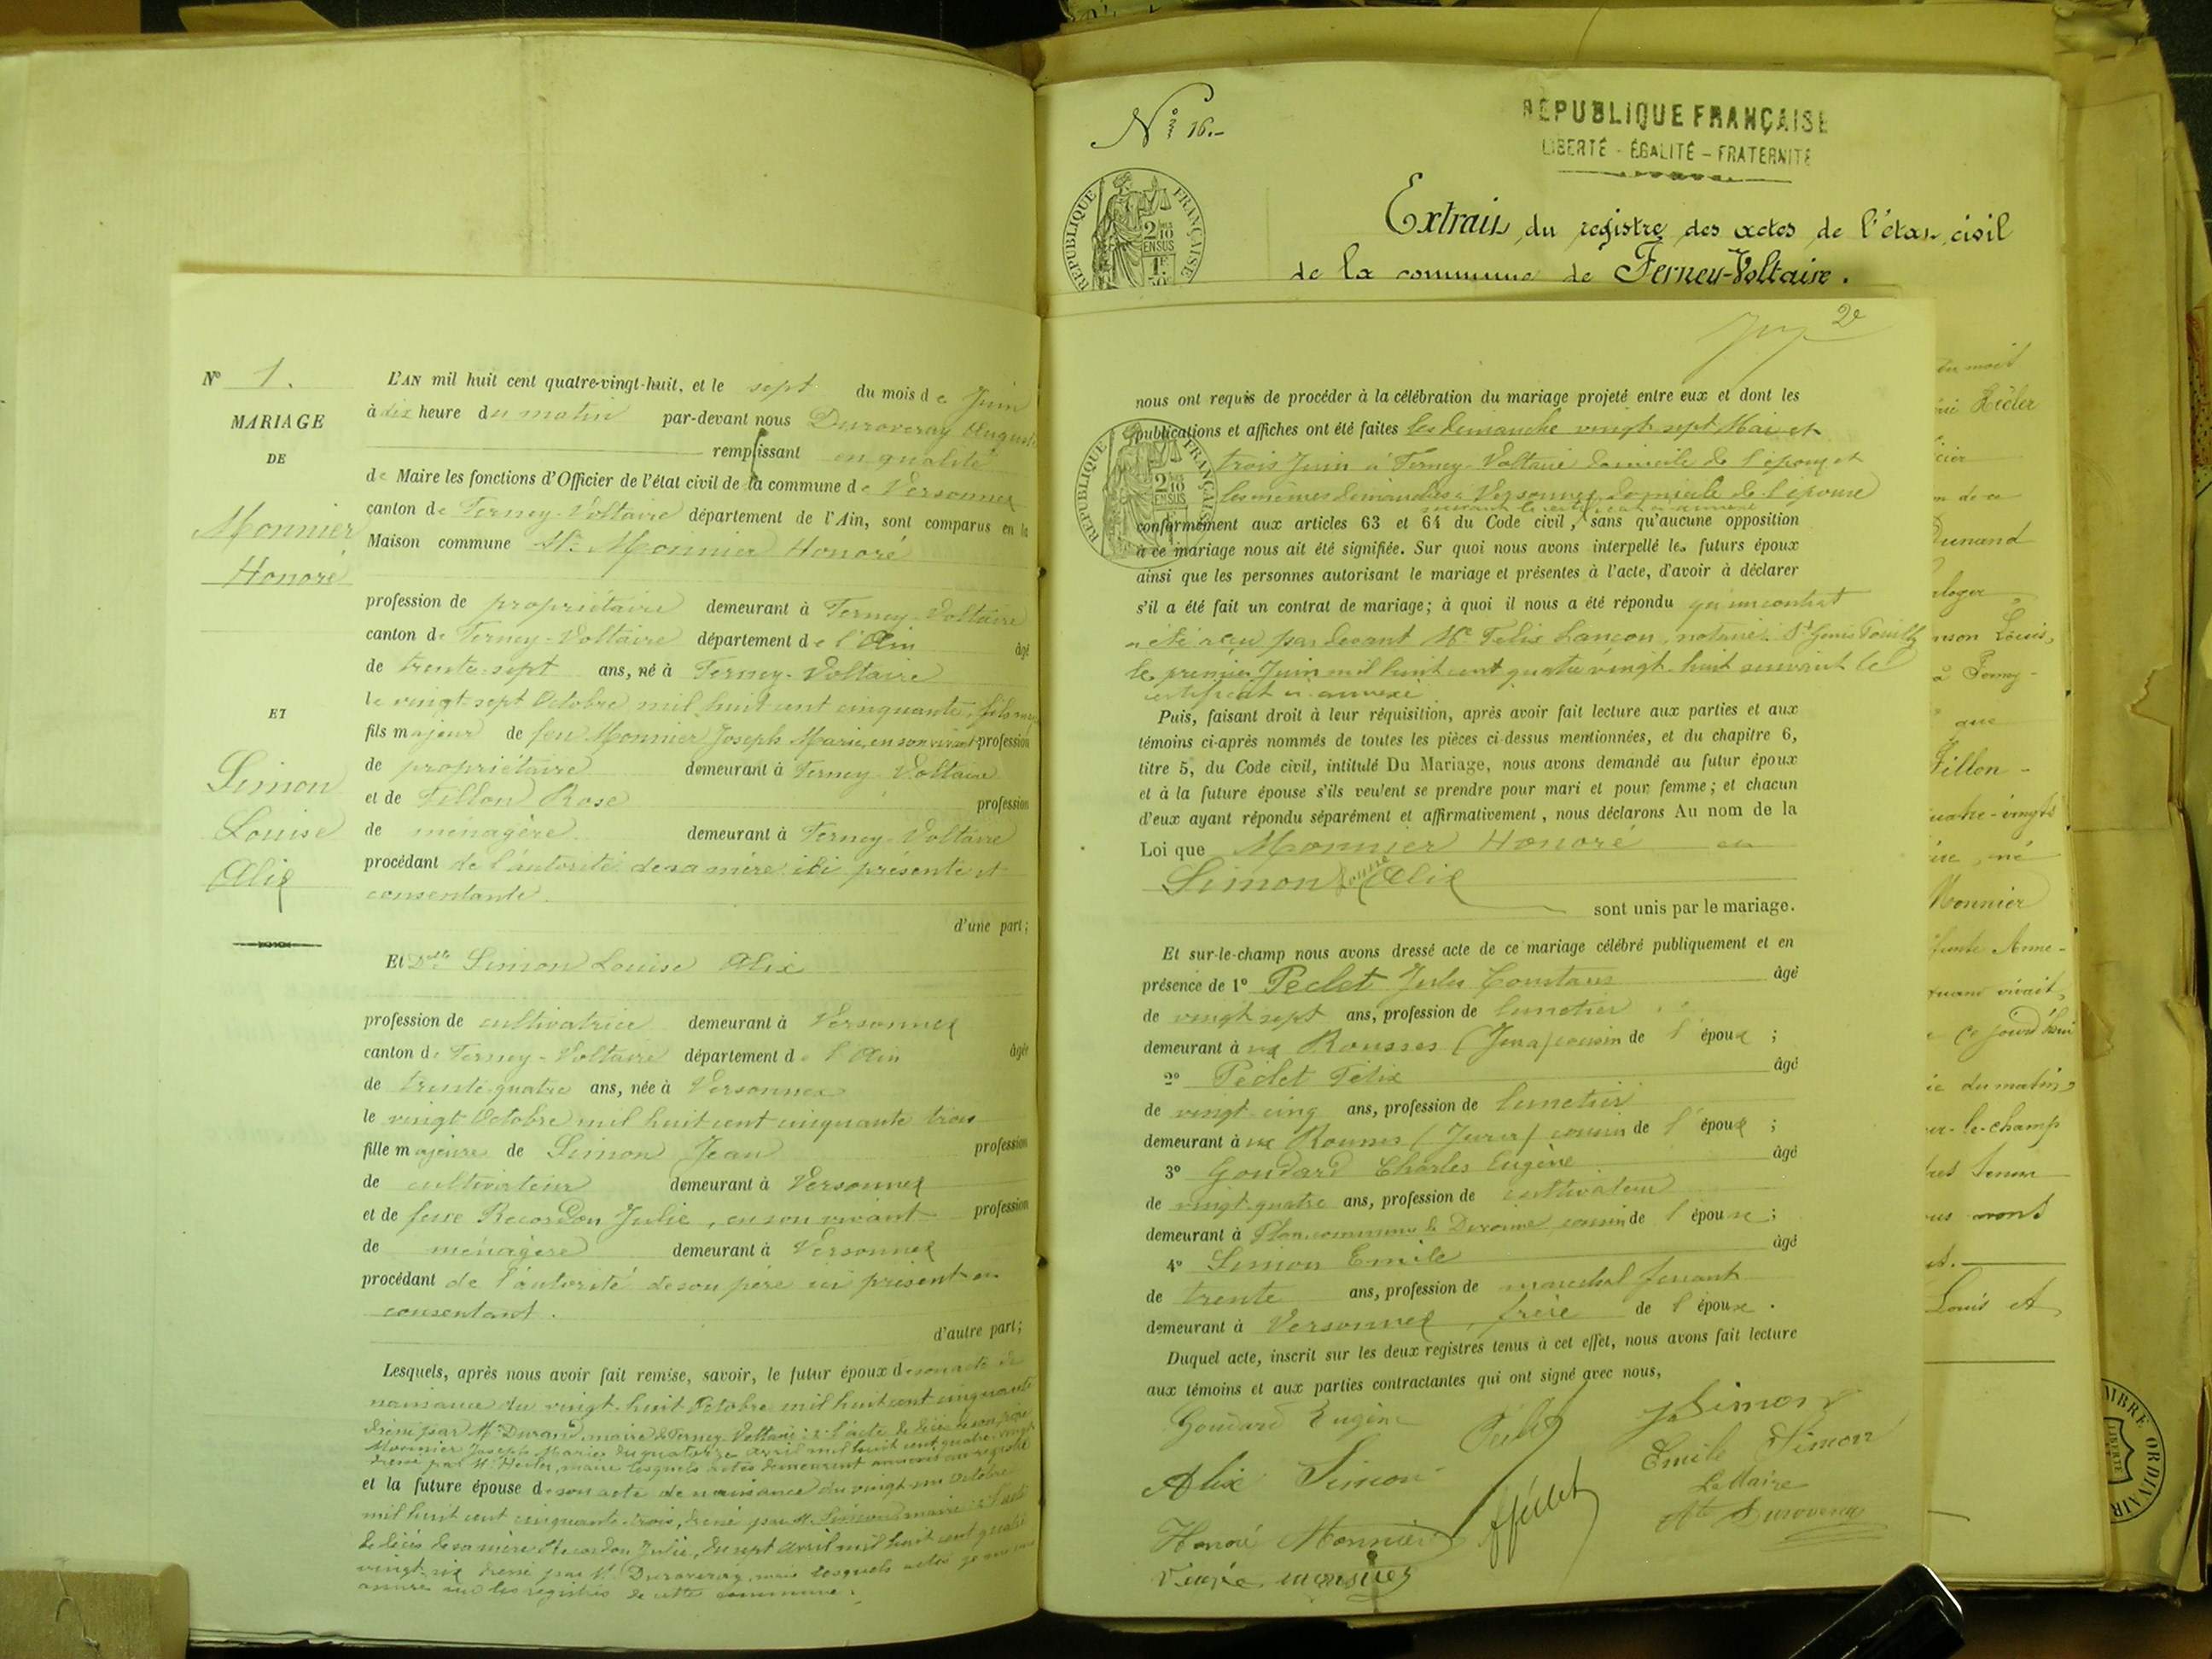 Nº 1.
MARIAGE
DE
Monnier
Honoré
ET
Simon
Louise
Alix
L'AN mil huit cent quatre-vingt-huit, et le sept du mois de Juin
à dix heure du matin par-devant nous Duroveray Auguste
remplissant en qualité
de Maire les fonctions d'Officier de l'état civil de la commune de Versonnex
canton de Ferney-Voltaire département de l'Ain, sont comparus en la
Maison commune Mr Monnier Honoré
profession de propriétaire demeurant à Ferney-Voltaire
canton de Ferney-Voltaire département de l'Ain âgé
de trente-sept ans, né à Ferney-Voltaire
le vingt-sept Octobre mil huit cent cinquante, fils
fils majeur de feu Monnier Joseph Marie, en son vivant profession
de propriétaire demeurant à Ferney-Voltaire
et de Fillon Rose profession
de ménagère demeurant à Ferney-Voltaire
procédant de l'autorité de sa mère ici présente et
consentante.
d'une part;
Et Dlle Simon Louise Alix
profession de cultivatrice demeurant à Versonnex
canton de Ferney-Voltaire département de l'Ain âgée
de trente-quatre ans, née à Versonnex
le vingt Octobre mil huit cent cinquante trois
fille majeure de Simon Jean profession
de cultivateur demeurant à Versonnex
et de feue Recordon Julie, en son vivant profession
de ménagère demeurant à Versonnex
procédant de l'autorité de son père ici présent et
consentant.
d'autre part;
Lesquels, après nous avoir fait remise, savoir, le futur époux de son acte de
naissance du vingt-huit Octobre mil huit cent cinquante
dressé par Mr Durand, maire de Ferney-Voltaire; 2º l'acte de décès de son père
Monnier Joseph Marie du quatorze avril mil huit cent quatre-vingt
dressé par M. Hecler, maire lesquels actes demeurent annexés au registre
et la future épouse de son acte de naissance du vingt un Octobre
mil huit cent cinquante-trois, dressé par M. Simon, maire; 2º l'acte
de décès de sa mère Recordon Julie, du sept avril mil huit cent quatre
vingt-six dressé par M. Duroveray, maire lesquels actes
annexés aux registres de cette commune.
Nº 16.-
RÉPUBLIQUE FRANÇAISE
LIBERTÉ - ÉGALITÉ - FRATERNITÉ
RÉPUBLIQUE FRANÇAISE
2/10
EN SUS
1F
50c
Extrait du registre des actes de l'état civil
de la commune de Ferney-Voltaire.
2e
nous ont requis de procéder à la célébration du mariage projeté entre eux et dont les
publications et affiches ont été faites les dimanche vingt-sept Mai et
trois Juin à Ferney-Voltaire domicile de l'époux et
les mêmes dimanches à Versonnex domicile de l'épouse
suivant le certificat ci-annexé
conformément aux articles 63 et 64 du Code civil, sans qu'aucune opposition
à ce mariage nous ait été signifiée. Sur quoi nous avons interpellé les futurs époux
ainsi que les personnes autorisant le mariage et présentes à l'acte, d'avoir à déclarer
s'il a été fait un contrat de mariage; à quoi il nous a été répondu qu'un contrat
a été reçu par devant Me Félix Lançon, notaire à St Genis Pouilly
le premier Juin mil huit cent quatre vingt-huit suivant le
certificat ci-annexé
Puis, faisant droit à leur réquisition, après avoir fait lecture aux parties et aux
témoins ci-après nommés de toutes les pièces ci-dessus mentionnées, et du chapitre 6,
titre 5, du Code civil, intitulé Du Mariage, nous avons demandé au futur époux
et à la future épouse s'ils veulent se prendre pour mari et pour femme; et chacun
d'eux ayant répondu séparément et affirmativement, nous déclarons Au nom de la
Loi que Monnier Honoré et
Simon Louise Alix
sont unis par le mariage.
Et sur-le-champ nous avons dressé acte de ce mariage célébré publiquement et en
présence de 1º Péclet Jules Constant âgé
de vingt sept ans, profession de lunetier
demeurant aux Rousses (Jura) cousin de l'époux;
2º Péclet Félix âgé
de vingt-cinq ans, profession de lunetier
demeurant aux Rousses (Jura) cousin de l'époux;
3º Goudard Charles Eugène âgé
de vingt-quatre ans, profession de cultivateur
demeurant à Plan, commune de Divonne, cousin de l'épouse;
4º Simon Emile âgé
de trente ans, profession de maréchal ferrant
demeurant à Versonnex, frère de l'épouse.
Duquel acte, inscrit sur les deux registres tenus à cet effet, nous avons fait lecture
aux témoins et aux parties contractantes qui ont signé avec nous,
Goudard Eugène Péclet J. Simon
Alix Simon Emile Simon
Le Maire
Honoré Monnier F. Péclet Ate Duroveray
Veuve monnier
du mois
Hécler
Dunand
Louis,
à Ferney-
que
Fillon -
quatre-vingts
né
Monnier
Anne-
vivait,
ce jourd'hui
du matin,
sur-le-champ
avons
Louis et
TIMBRE ORDINAIRE